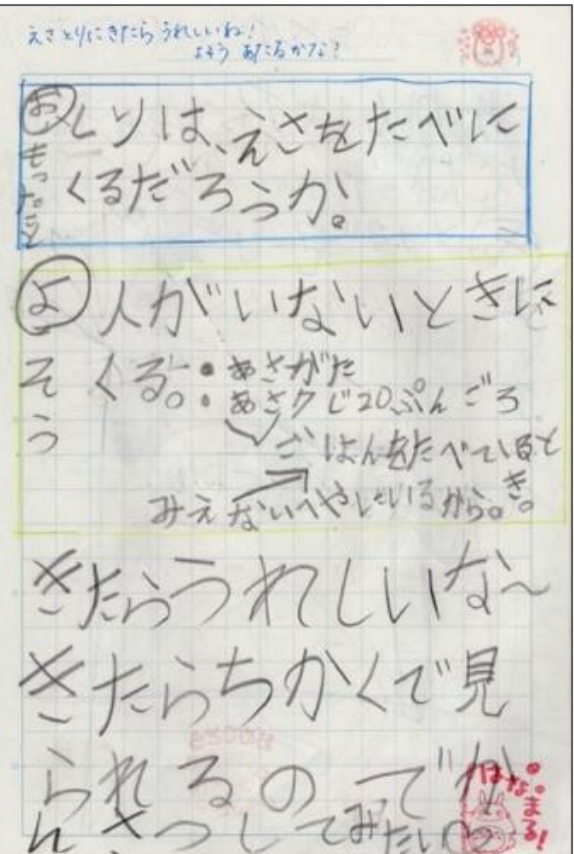 えさとりにきたらうれしいね!
よそう あたるかな?
おもったこと
とりは、えさをたべに
くるだろうか。
よそう
人がいないときに
くる。
・あさがた
・あさ7じ20ぷんごろ
ごはんをたべているとき。
みえないへやにいるから。
きたらうれしいな〜
きたらちかくで見
られるのでか
んさつしてみたい
はなまる!